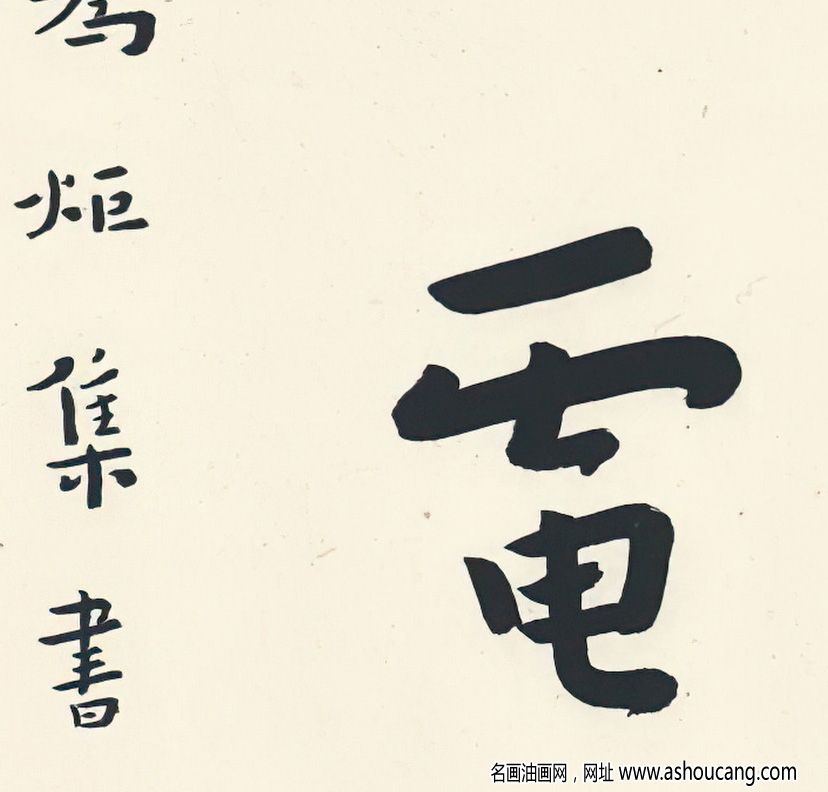 電
為炬集書
名画油画网，网址 www.ashoucang.com